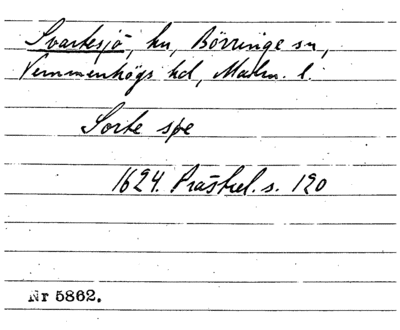 Svartesjö, hu, Börringe sn,
Vemmenhögs hd, Malm. l.
Sorte spe
1624. Prästrel. s. 120
Nr 5862.